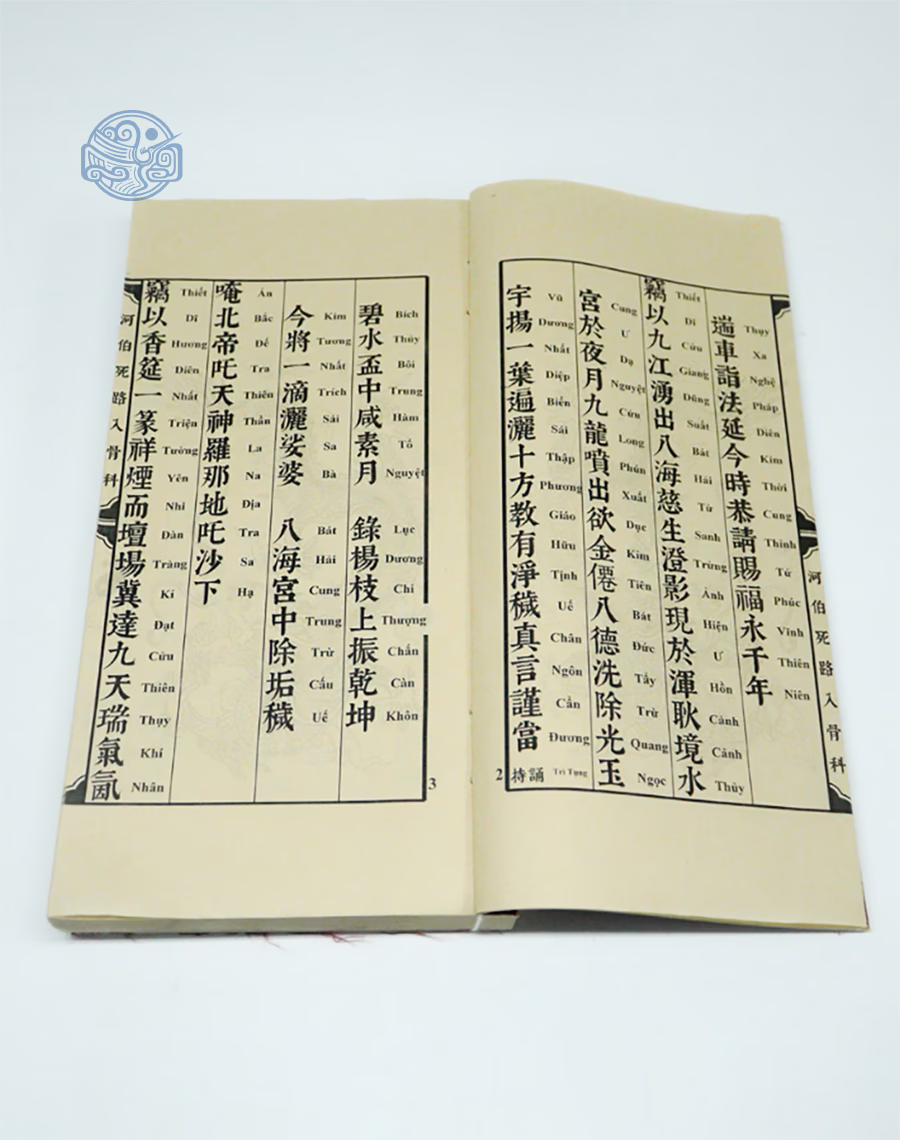 河伯死路入骨科
遄車詣法延今時恭請賜福永千年
Thụy Xa Nghệ Pháp Diên Kim Thời Cung Thỉnh Tứ Phúc Vĩnh Thiên Niên
竊以九江湧出八海慈生澄影現於渾耿境水
Thiết Dĩ Cửu Giang Dũng Suất Bát Hải Từ Sanh Trừng Ảnh Hiện Ư Hồn Cảnh Cảnh Thủy
宮於夜月九龍噴出欲金僊八德洗除光玉
Cung Ư Dạ Nguyệt Cửu Long Phún Xuất Dục Kim Tiên Bát Đức Tẩy Trừ Quang Ngọc
宇揚一葉遍灑十方教有淨穢真言謹當持誦
Vũ Dương Nhất Diệp Biến Sái Thập Phương Giáo Hữu Tịnh Uế Chân Ngôn Cẩn Đương Trì Tụng
2
碧水盃中咸素月 錄楊枝上振乾坤
Bích Thủy Bôi Trung Hàm Tố Nguyệt Lục Dương Chi Thượng Chấn Càn Khôn
今將一滴灑娑婆 八海宮中除垢穢
Kim Tương Nhất Trích Sái Sa Bà Bát Hải Cung Trung Trừ Cấu Uế
唵北帝吒天神羅那地吒沙下
Án Bắc Đế Tra Thiên Thần La Na Địa Tra Sa Hạ
竊以香筵一篆祥煙而壇場冀達九天瑞氣氤
Thiết Dĩ Hương Diên Nhất Triện Tường Yên Nhi Đàn Tràng Kí Đạt Cửu Thiên Thụy Khí Nhân
3
河伯死路入骨科